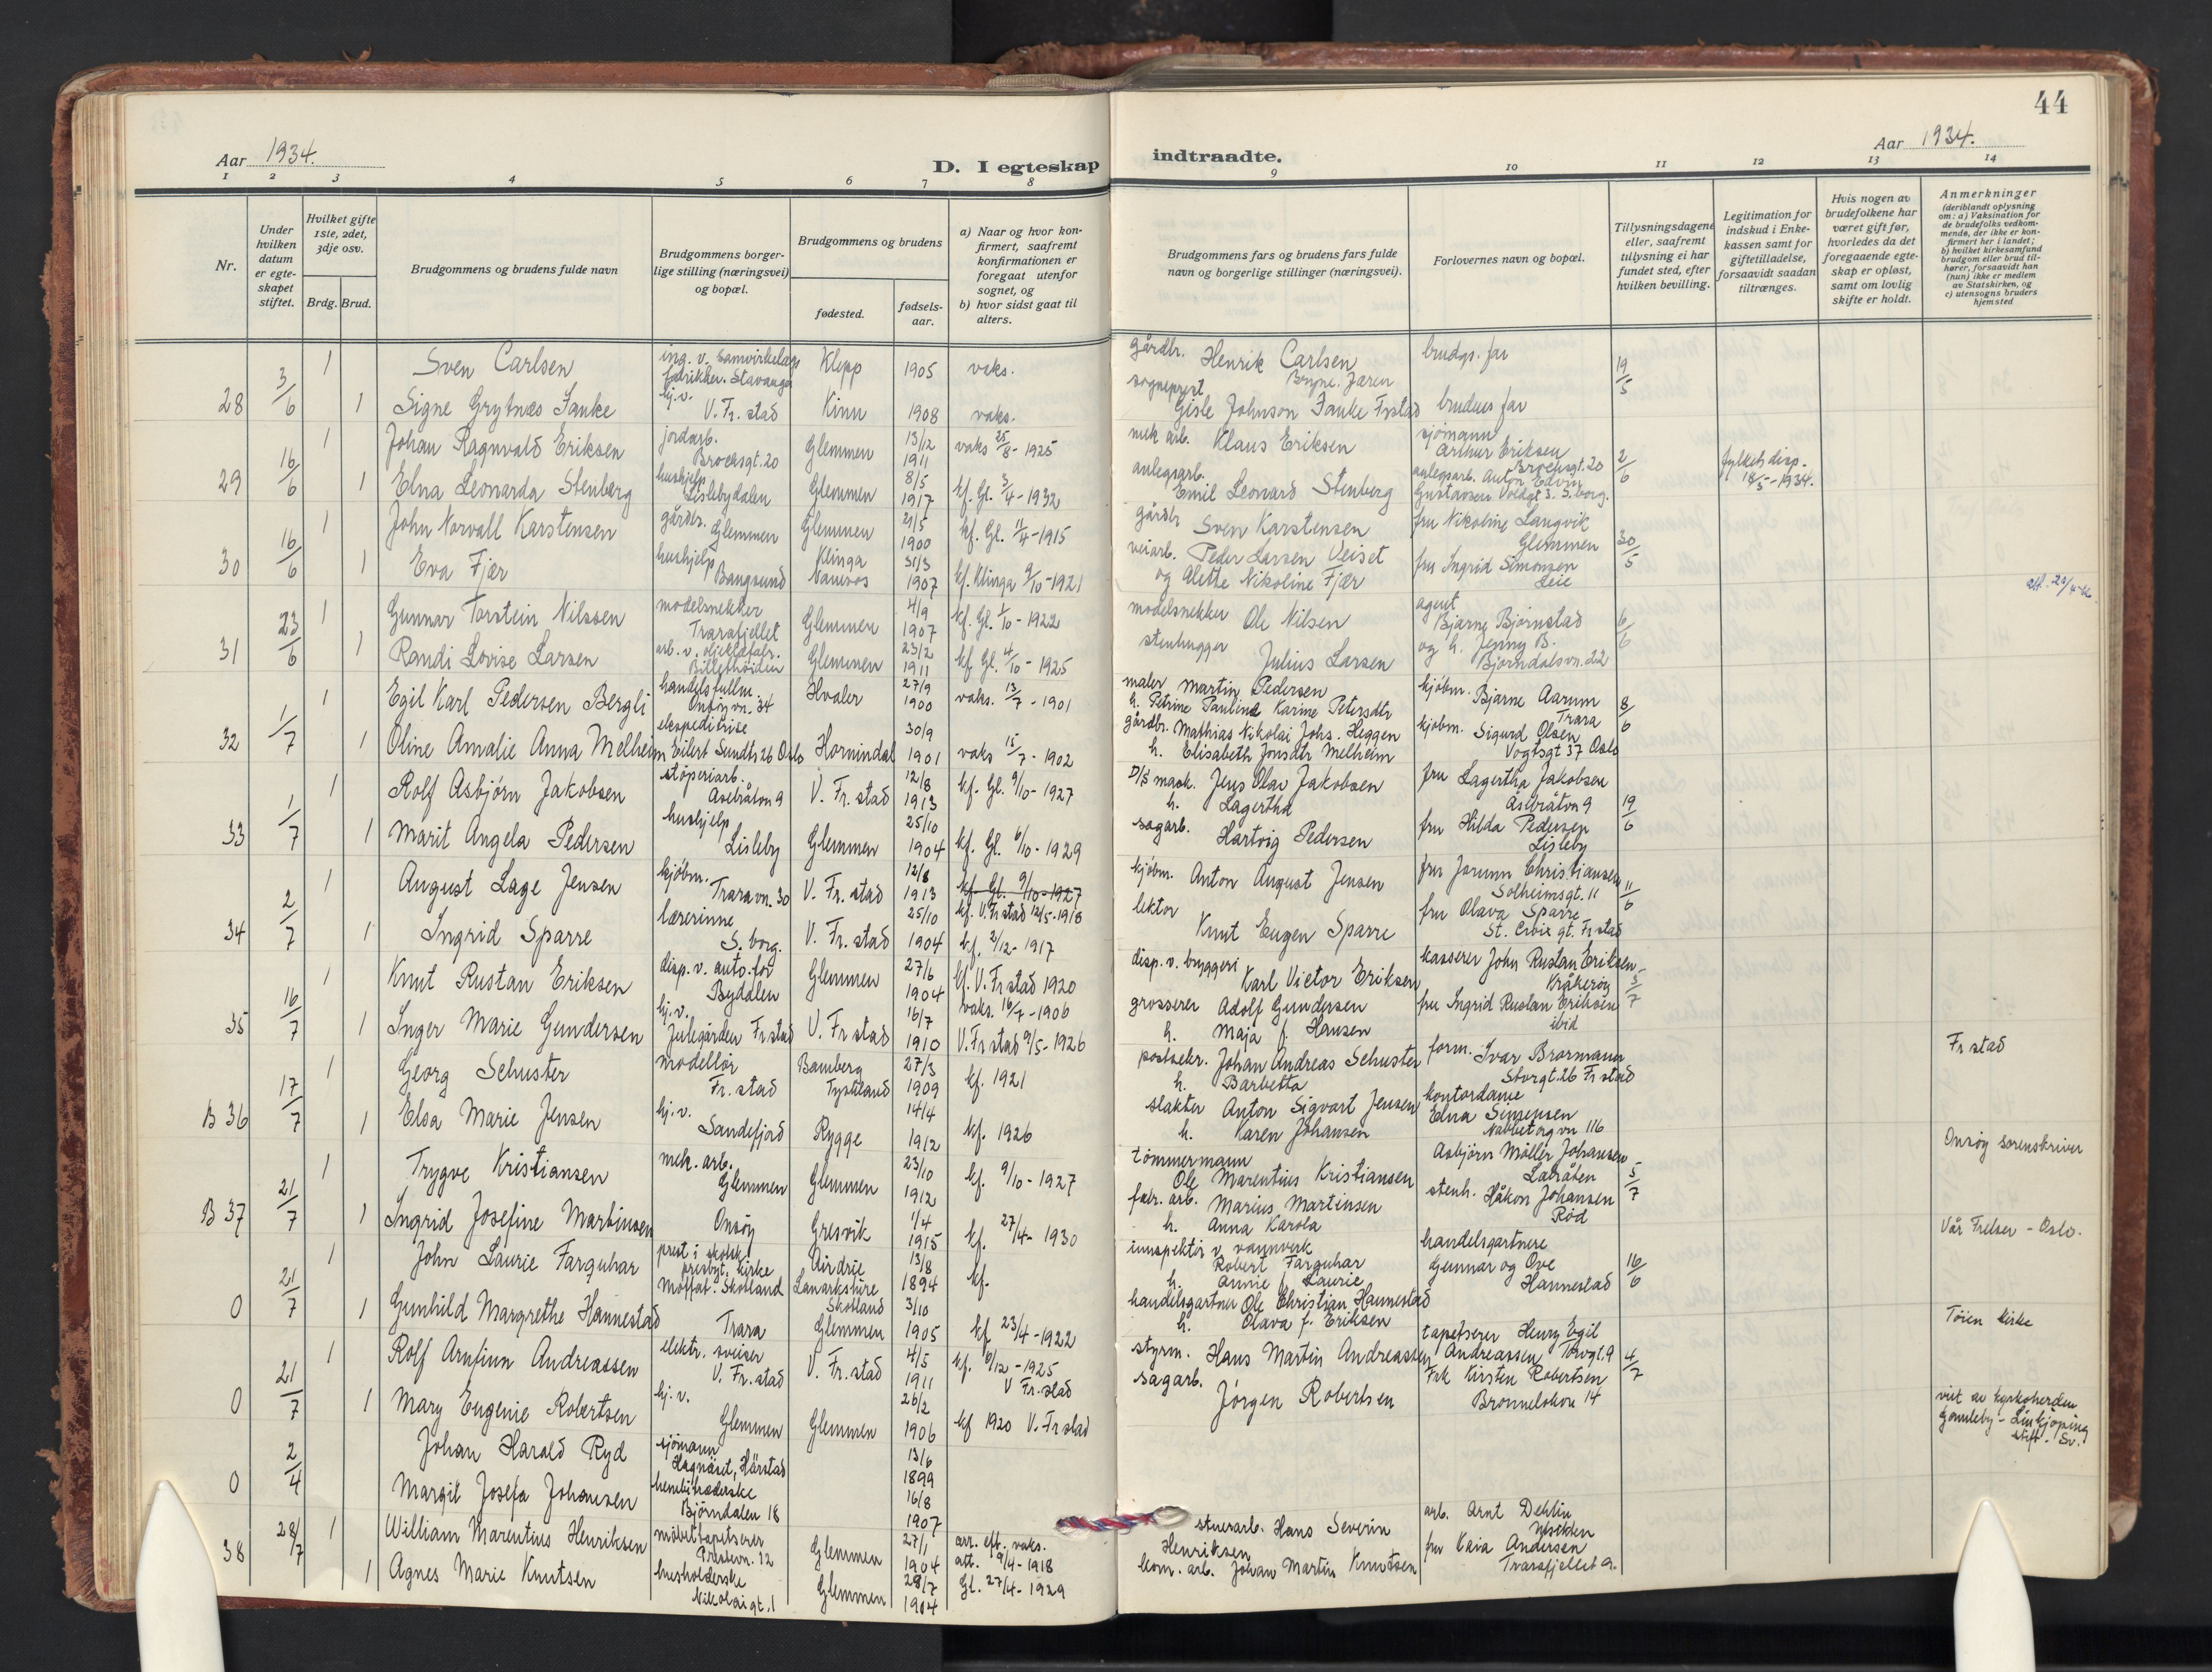 44
Aar 1934.
D. I egteskap indtraadte.
Aar 1934.
1 2 3 4 5 6 7 8 9 10 11 12 13 14
Nr.
Under hvilken datum er egteskapet stiftet.
Hvilket gifte 1ste, 2det, 3dje osv.
Brdg. Brud.
Brudgommens og brudens fulde navn
Brudgommens borgerlige stilling (næringsvei) og bopæl.
Brudgommens og brudens
fødested.
fødselsaar.
a) Naar og hvor konfirmert, saafremt konfirmationen er foregaat utenfor sognet, og
b) hvor sidst gaat til alters.
Brudgommens fars og brudens fars fulde navn og borgerlige stillinger (næringsvei).
Forlovernes navn og bopæl.
Tillysningsdagene eller, saafremt tillysning ei har fundet sted, efter hvilken bevilling.
Legitimation for indskud i Enkekassen samt for giftetilladelse, forsaavidt saadan tiltrænges.
Hvis nogen av brudefolkene har været gift før, hvorledes da det foregaaende egteskap er opløst, samt om lovlig skifte er holdt.
Anmerkninger
(deriblandt oplysning om: a) Vaksination for de brudefolks vedkommende, der ikke er konfirmert her i landet; b) hvilket kirkesamfund brudgom eller brud tilhører, forsaavidt han (hun) ikke er medlem av Statskirken, og c) utensogns bruders hjemsted
28 3/6 1 Sven Carlsen ing. v. Samvirkelags fabrikker. Stavanger Klepp 1905 vaks. gårdbr. Henrik Carlsen Bryne. Jæren brudgs. far 19/5
1 Signe Grytnæs Tanke hj.v. V. Fr. stad Kinn 1908 vaks. sogneprest Gisle Johnson Tanke Frstad brudens far
29 16/6 1 Johan Ragnvald Eriksen jordarb. Brochsgt. 20 Glemmen 13/12 1911 vaks 25/8 - 1925 mek arb. Klaus Eriksen sjömann Arthur Eriksen Brochsgt. 20 2/6 fylkets disp. 18/5 - 1934.
1 Elna Leonarda Stenberg hushjelp Lislebydalen Glemmen 8/5 1917 kf. Gl. 3/4 - 1932 anlegsarb. Emil Leonard Stenberg anlegsarb. Anton Edvin Gustavsen Voldgt 3. S.borg.
30 16/6 1 John Norvall Karstensen gårdbr. Glemmen Glemmen 21/5 1900 kf. Gl. 11/4 - 1915 gårdbr Sven Karstensen fru Nikoline Langvik Glemmen 30/5
1 Eva Fjær hushjelp Bangsund Klinga Namsos 31/3 1907 kf. Klinga 9/10 - 1921 veiarb. Peder Larsen Veiset og Alette Nikoline Fjær fru Ingrid Simonsen Leie
31 23/6 1 Gunnar Torstein Nilssen modelsnekker Trarafjellet Glemmen 4/9 1907 kf. Gl. 1/10 - 1922 modelsnekker Ole Nilsen agent Bjarne Bjørnstad og h. Jenny B. Bjørndalsvn. 22 6/6
1 Randi Lovise Larsen arb. v. oljeklæfabr. Billethöiden Glemmen 23/2 1911 kf Gl. 4/10 - 1925 stenhugger Julius Larsen
32 1/7 1 Egil Karl Pedersen Bergli handelsfullm. Onsöyvn. 34 Hvaler 27/9 1900 vaks. 13/7 - 1901 maler Martin Pedersen h. Petrine Pauline Karine Petersdtr kjöbm. Bjarne Aarum Trara 8/6
1 Oline Amalie Anna Melheim ekspeditrise Eilert Sundts 26 Oslo Hornindal 30/9 1901 vaks 15/7 - 1902 gårdbr. Mathias Nikolai Johs. Heggen h. Elisabeth Jonsdtr Melheim kjöbm. Sigurd Olsen Vogtsgt 37 Oslo
33 1/7 1 Rolf Asbjörn Jakobsen støperiarb. Aselråton 9 V. Fr. stad 12/8 1913 kf. Gl. 9/10 - 1927 D/S mask. Jens Olav Jakobsen h. Lagertha fru Lagertha Jakobsen Aselråton 9 19/6
1 Marit Angela Pedersen hushjelp Lisleby Glemmen 25/10 1904 kf. Gl. 6/10 - 1929 sagarb. Hartvig Pedersen fru Hilda Pedersen Lisleby
34 2/7 1 August Lage Jensen kjöbm. Traravn. 30 V. Fr. stad 12/8 1913 kf. Gl. 9/10 - 1927 kf. V. Fr stad 12/5 - 1918 kjöbm. Anton August Jensen fru Jorunn Christiansen Solheimsgt. 11 11/6
1 Ingrid Sparre lærerinne S. borg. V. Fr. stad 25/10 1904 kf. 2/12 - 1917 lektor Knut Eugen Sparre fru Olava Sparre St. Croix gt. Fr stad
35 16/7 1 Knut Rustan Eriksen disp. v. auto. for Bydalen Glemmen 27/6 1904 kf. V. Fr stad 1920 disp. v. bryggeri Karl Victor Eriksen kasserer John Rustan Eriksen Kråkerøy 3/7
1 Inger Marie Gundersen hj. v. Julegården Fr stad V. Fr stad 16/7 1910 vaks. 16/7 - 1906 V. Fr stad 9/5 - 1926 grosserer Adolf Gundersen h. Maja f. Hansen fru Ingrid Rustan Eriksen ibid
B 36 17/7 1 Georg Schuster modellør Fr. stad Bamberg Tyskland 27/3 1909 kf. 1921 postsekr. Johan Andreas Schuster h. Barbetta form. Ivar Brormann Storgt. 26 Fr stad Fr stad
1 Elsa Marie Jensen hj. v. Sandefjord Rygge 14/4 1912 kf. 1926 slakter Anton Sigvart Jensen h. Karen Johansen kontordame Elna Simensen Nabbetorgvn 116
B 37 21/7 1 Trygve Kristiansen mek. arb. Glemmen Glemmen 23/10 1912 kf. 9/10 - 1927 tömmermann Ole Marentius Kristiansen Asbjörn Möller Johansen Labråten 5/7 Onsöy sorenskriver
1 Ingrid Josefine Martinsen Onsöy Gresvik 1/4 1915 kf. 27/4 - 1930 fabr. arb. Marius Martinsen h. Anna Karola stenh. Håkon Johansen Rød
0 21/7 1 John Laurie Farquhar prest i skotsk presbyt. kirke Moffat. Skotland Airdrie Lanarkshire Skotland 13/8 1894 kf. innspektör v. vannverk Robert Farquhar h. Annie f. Laurie handelsgartnere Gunnar og Ove Hannestad 16/6 Vår Frelser - Oslo.
1 Gunhild Margrethe Hannestad Trara Glemmen 3/10 1905 kf 23/4 - 1922 handelsgartner Ole Christian Hannestad h. Olava f. Eriksen
0 21/7 1 Rolf Arnfinn Andreassen elektr. sveiser V. Fr. stad V. Fr. stad 4/5 1911 kf. 6/12 - 1925 V Fr. stad styrm. Hans Martin Andreassen tapetserer Henry Egil Andreassen Torvgt. 9 4/7 Töien kirke
1 Mary Eugenie Robertsen hj. v. Glemmen Glemmen 26/2 1906 kf 1920 V. Fr stad sagarb. Jörgen Robertsen Frk Kirsten Robertsen Brønneløkken 14
0 2/4 Johan Harald Ryd sjömann Hagnäset, Hårstad 13/6 1899 viet av kyrkoherden Gamleby - Linkjöping stift. Sv.
Margit Josefa Johansen hembitrederske Bjørndalen 18 16/8 1907
38 28/7 1 William Marentius Henriksen möbeltapetserer Prestevn. 12 Glemmen 27/1 1904 arr. eft. vaks. att. 9/4 - 1918 stuerarb. Hans Severin Henriksen arb. Arnt Dehlin
1 Agnes Marie Knutsen husholderske Nikolaigt. 1 Glemmen 28/7 1904 Gl. 27/4 - 1929 kom. arb. Johan Martin Knutsen fru Kaia Andersen Trarafjellet 9.